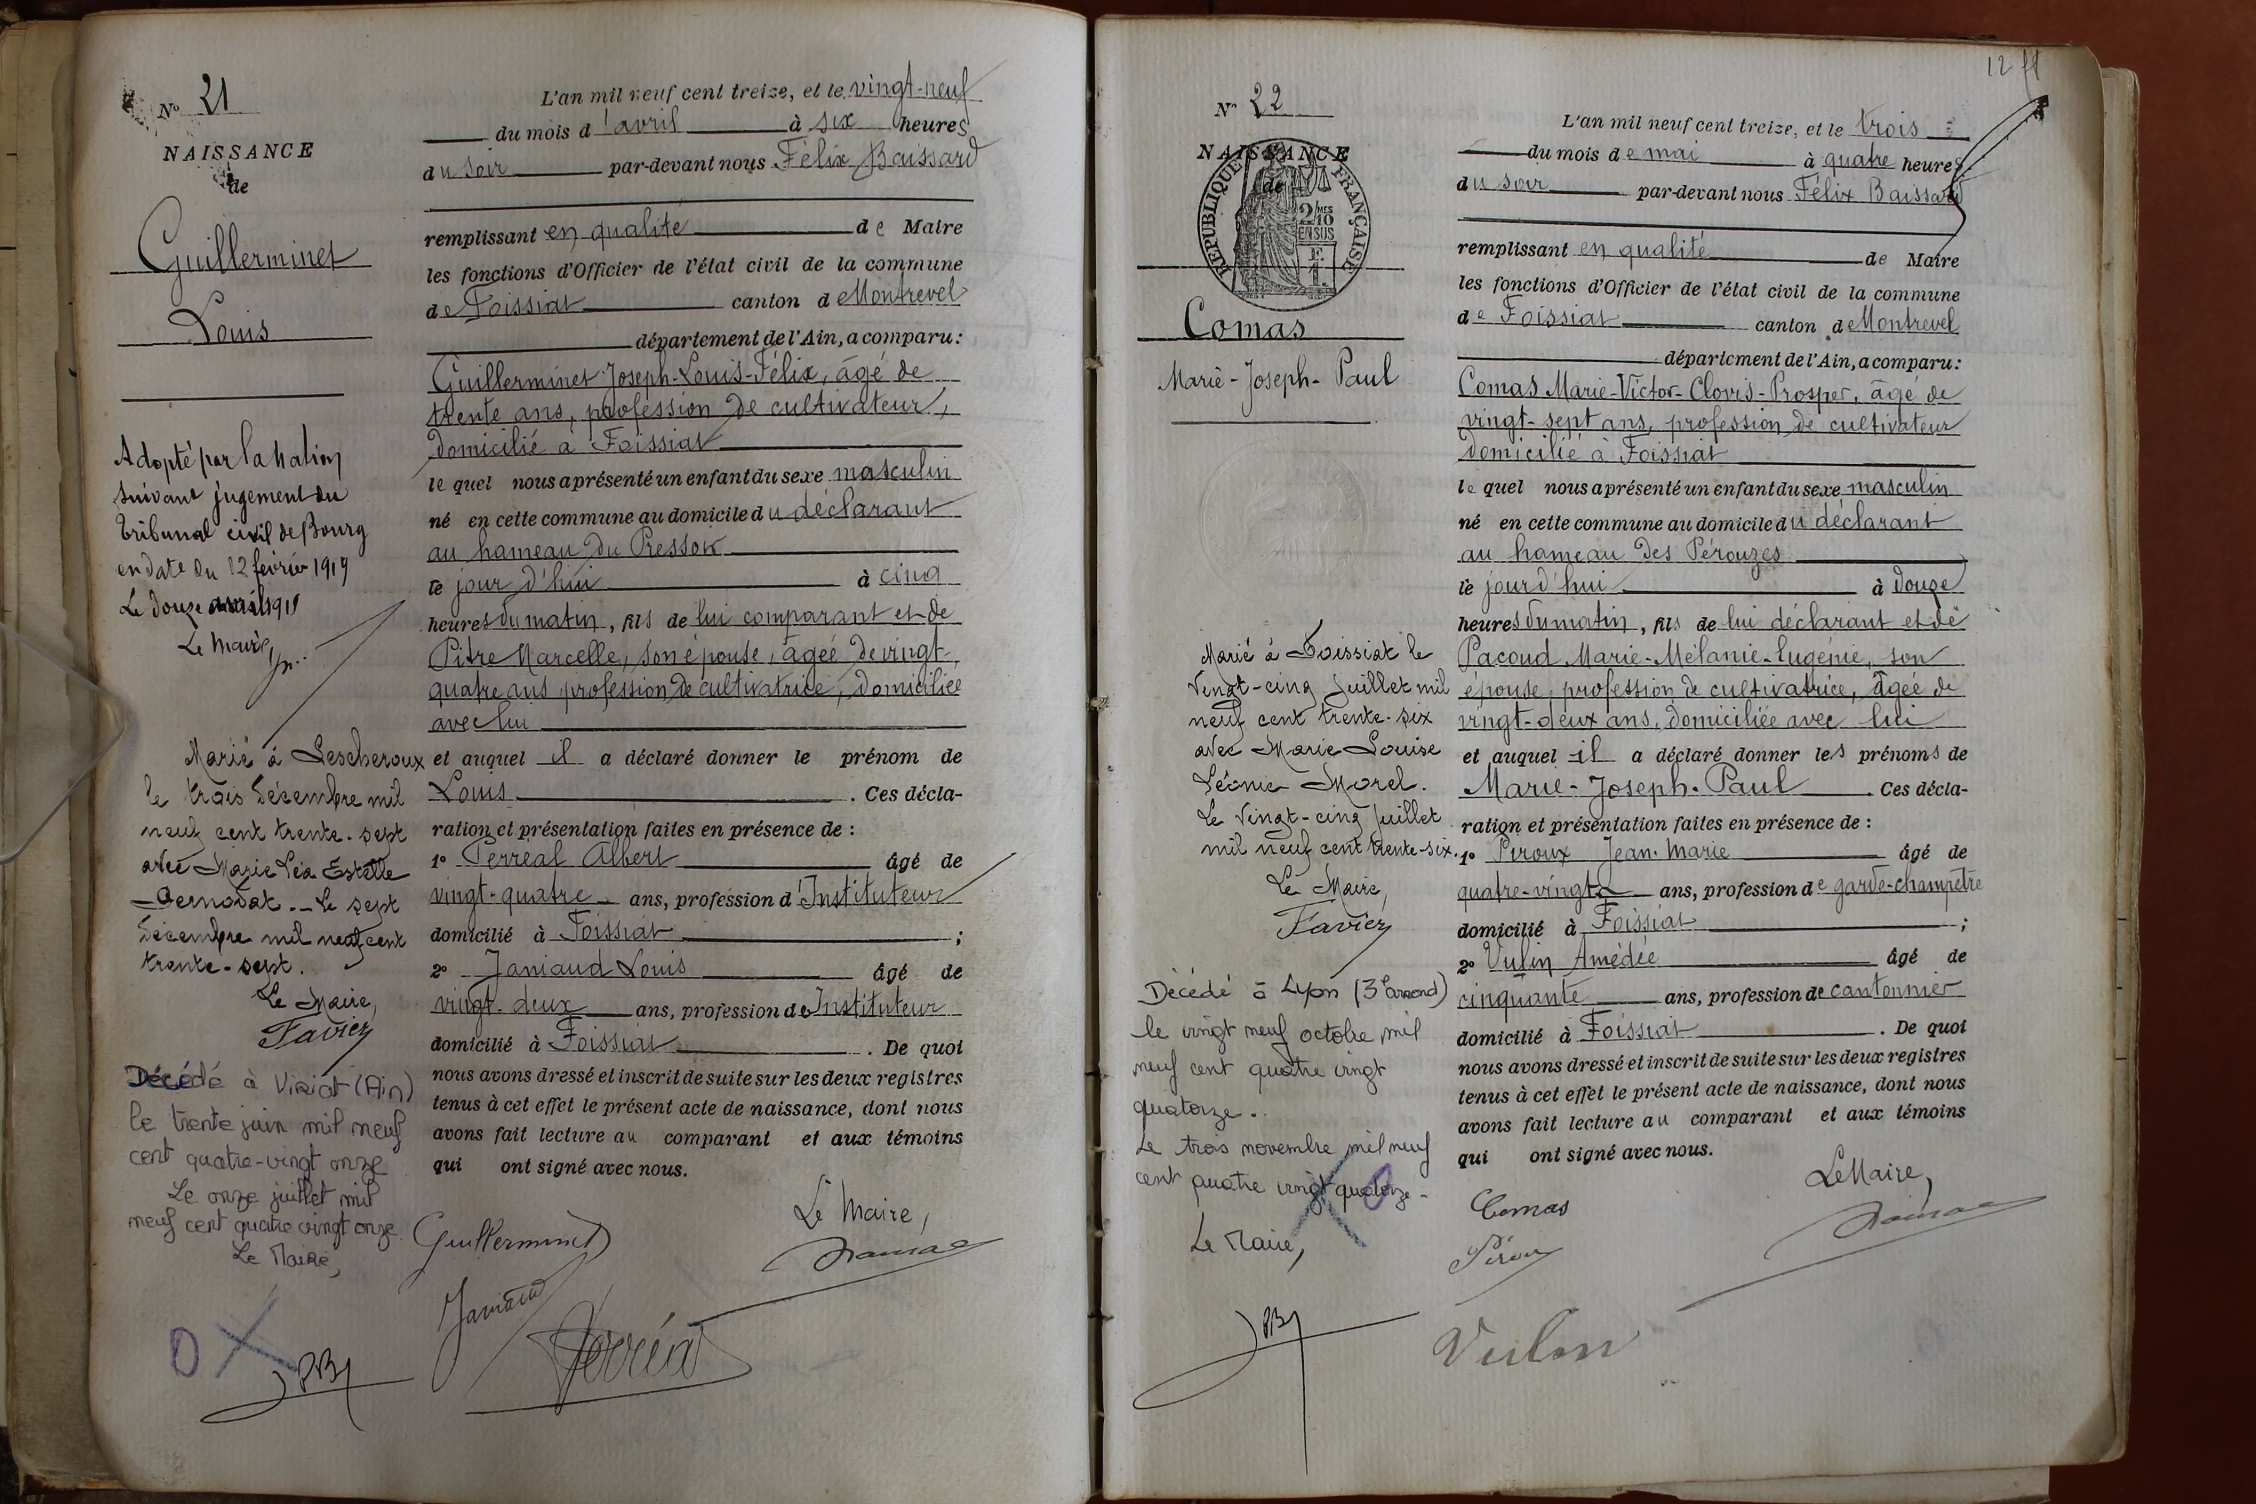 N° 21
NAISSANCE
de
Guillerminet
Louis
Adopté par la Nation
suivant jugement du
tribunal civil de Bourg
en date du 12 février 1919
Le douze avril 1919
Le Maire,
Marié à Lescheroux
le trois Décembre mil
neuf cent trente-sept
avec Marie Léa Estelle
Le sept
Décembre mil neuf cent
trente-sept.
Le Maire,
Favier
Décédé à Viriat (Ain)
le trente juin mil neuf
cent quatre-vingt onze
Le onze juillet mil
neuf cent quatre vingt onze
Le Maire,
L'an mil neuf cent treize, et le vingt-neuf
du mois d'avril à six heures
du soir par-devant nous Félix Baissard
remplissant en qualité de Maire
les fonctions d'Officier de l'état civil de la commune
de Foissiat canton de Montrevel
département de l'Ain, a comparu :
Guillerminet Joseph-Louis-Félix, âgé de
trente ans, profession de cultivateur,
domicilié à Foissiat
le quel nous a présenté un enfant du sexe masculin
né en cette commune au domicile du déclarant
au hameau du Pressoir
le jour d'hui à cinq
heures du matin, fils de lui comparant et de
Pitre Marcelle, son épouse, âgée de vingt-
quatre ans profession de cultivatrice, domiciliée
avec lui
et auquel il a déclaré donner le prénom de
Louis. Ces décla-
ration et présentation faites en présence de :
1° Perréal Albert âgé de
vingt-quatre ans, profession d'Instituteur
domicilié à Foissiat ;
2° Janiaud Louis âgé de
vingt-deux ans, profession de Instituteur
domicilié à Foissiat. De quoi
nous avons dressé et inscrit de suite sur les deux registres
tenus à cet effet le présent acte de naissance, dont nous
avons fait lecture au comparant et aux témoins
qui ont signé avec nous.
Le Maire,
Guillerminet
Janiaud
Perréal
12
N° 22
NAISSANCE
de
RÉPUBLIQUE FRANÇAISE
2/10 MES
EN SUS
Comas
Marie-Joseph-Paul
Marié à Foissiat le
Vingt-cinq Juillet mil
neuf cent trente-six
avec Marie Louise
Léonie Morel.
Le Vingt-cinq Juillet
mil neuf cent trente-six.
Le Maire,
Favier
Décédé à Lyon (3e arrond)
le vingt neuf octobre mil
neuf cent quatre vingt
quatorze.
Le trois novembre mil neuf
cent quatre vingt quatorze-
Le Maire,
L'an mil neuf cent treize, et le trois
du mois de mai à quatre heures
du soir par-devant nous Félix Baissard
remplissant en qualité de Maire
les fonctions d'Officier de l'état civil de la commune
de Foissiat canton de Montrevel
département de l'Ain, a comparu :
Comas Marie-Victor-Clovis-Prosper, âgé de
vingt-sept ans, profession de cultivateur
domicilié à Foissiat
le quel nous a présenté un enfant du sexe masculin
né en cette commune au domicile du déclarant
au hameau des Pérouzes
le jourd'hui à douze
heures du matin, fils de lui déclarant et de
Pacoud Marie-Mélanie-Eugénie, son
épouse, profession de cultivatrice, âgée de
vingt-deux ans, domiciliée avec lui
et auquel il a déclaré donner les prénoms de
Marie-Joseph-Paul. Ces décla-
ration et présentation faites en présence de :
1° Piroux Jean-Marie âgé de
quatre-vingts ans, profession de garde-champêtre
domicilié à Foissiat ;
2° Vulin Amédée âgé de
cinquante ans, profession de cantonnier
domicilié à Foissiat. De quoi
nous avons dressé et inscrit de suite sur les deux registres
tenus à cet effet le présent acte de naissance, dont nous
avons fait lecture au comparant et aux témoins
qui ont signé avec nous.
Le Maire,
Comas
Piroux
Vulin